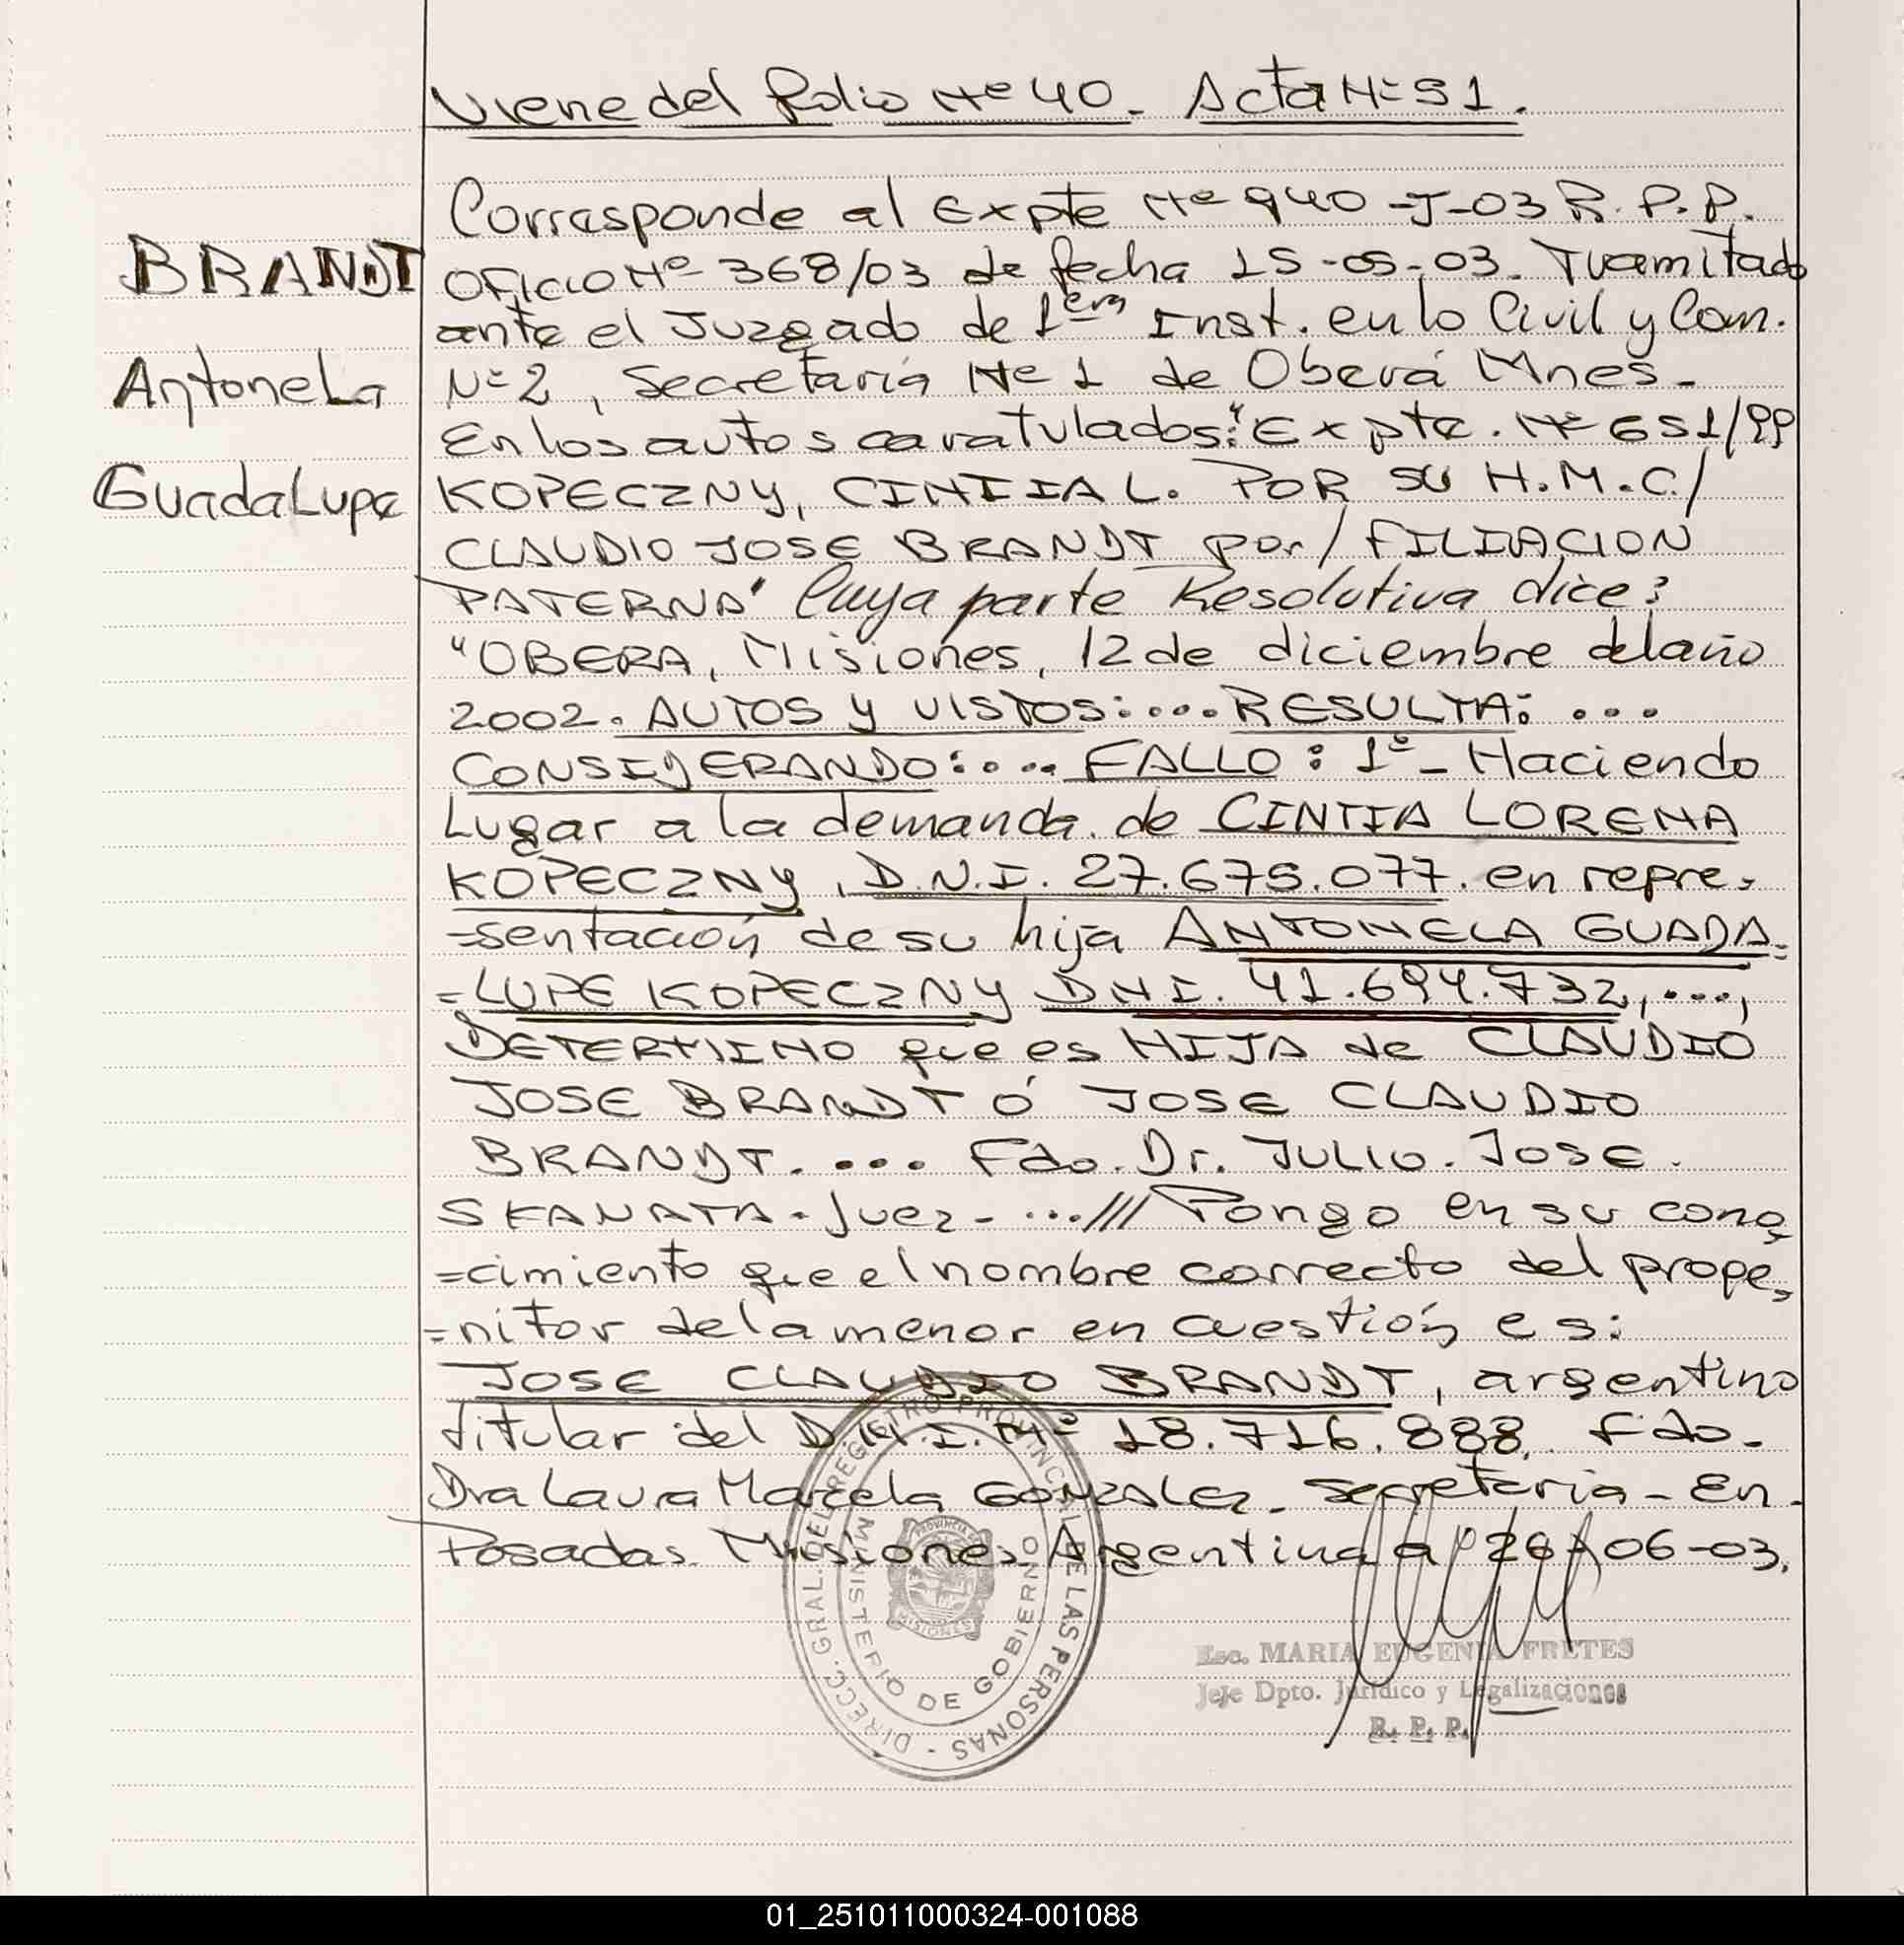 Viene del folio Nº 40. Acta Nº 51.
BRANDT
Antonela
Guadalupe
Corresponde al Expte Nº 940-J-03 R.P.P.
OFICIO Nº 368/03 de fecha 15-05-03. Tramitado
ante el Juzgado de 1era Inst. en lo Civil y Com.
Nº 2, Secretaría Nº 1 de Oberá Mnes.
En los autos caratulados: "Expte. Nº 651/99
KOPECZNY, CINTIA L. POR SU H.M.C/
CLAUDIO JOSE BRANDT por/ FILIACION
PATERNA" Cuya parte Resolutiva dice:
"OBERA, Misiones, 12 de diciembre del año
2002. AUTOS y VISTOS:.... RESULTA: ...
CONSIDERANDO:.... FALLO: 1º- Haciendo
Lugar a la demanda de CINTIA LORENA
KOPECZNY, D.N.I. 27.675.077. en repre-
=sentación de su hija ANTONELA GUADA=
=LUPE KOPECZNY DNI. 41.694.732, ...,
DETERMINO que es HIJA de CLAUDIO
JOSE BRANDT ó JOSE CLAUDIO
BRANDT. ... Fdo. Dr. JULIO. JOSE.
SKANATA. Juez- ...///Pongo en su cono
=cimiento que el nombre correcto del proge=
=nitor de la menor en cuestión es:
JOSE CLAUDIO BRANDT, argentino
titular del D.N.I. Nº 18.716.888. Fdo.
Dra Laura Marcela GONZALEZ. Secretaria - En.
Posadas Misiones Argentina a 26-06-03.
DIRECC. GRAL. DEL REGISTRO PROVINCIAL DE LAS PERSONAS -
MINISTERIO DE GOBIERNO
PROVINCIA DE
MISIONES
Esc. MARIA EUGENIA FRETES
Jefe Dpto. Jurídico y Legalizaciones
R. P. P.
01_251011000324-001088